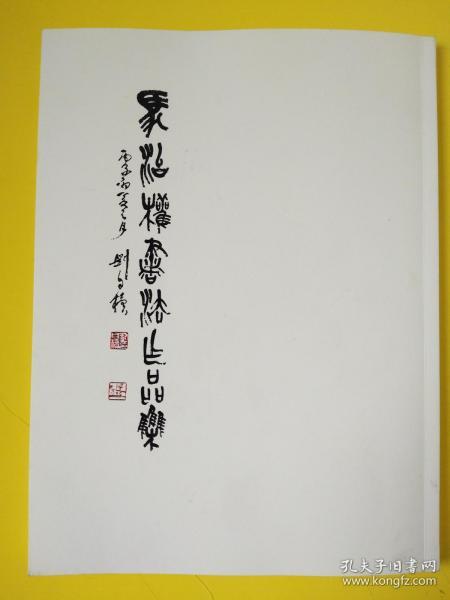 馬治權書法作品集
丙子初 月 劉自櫝
孔夫子旧书网
www.kongfz.com